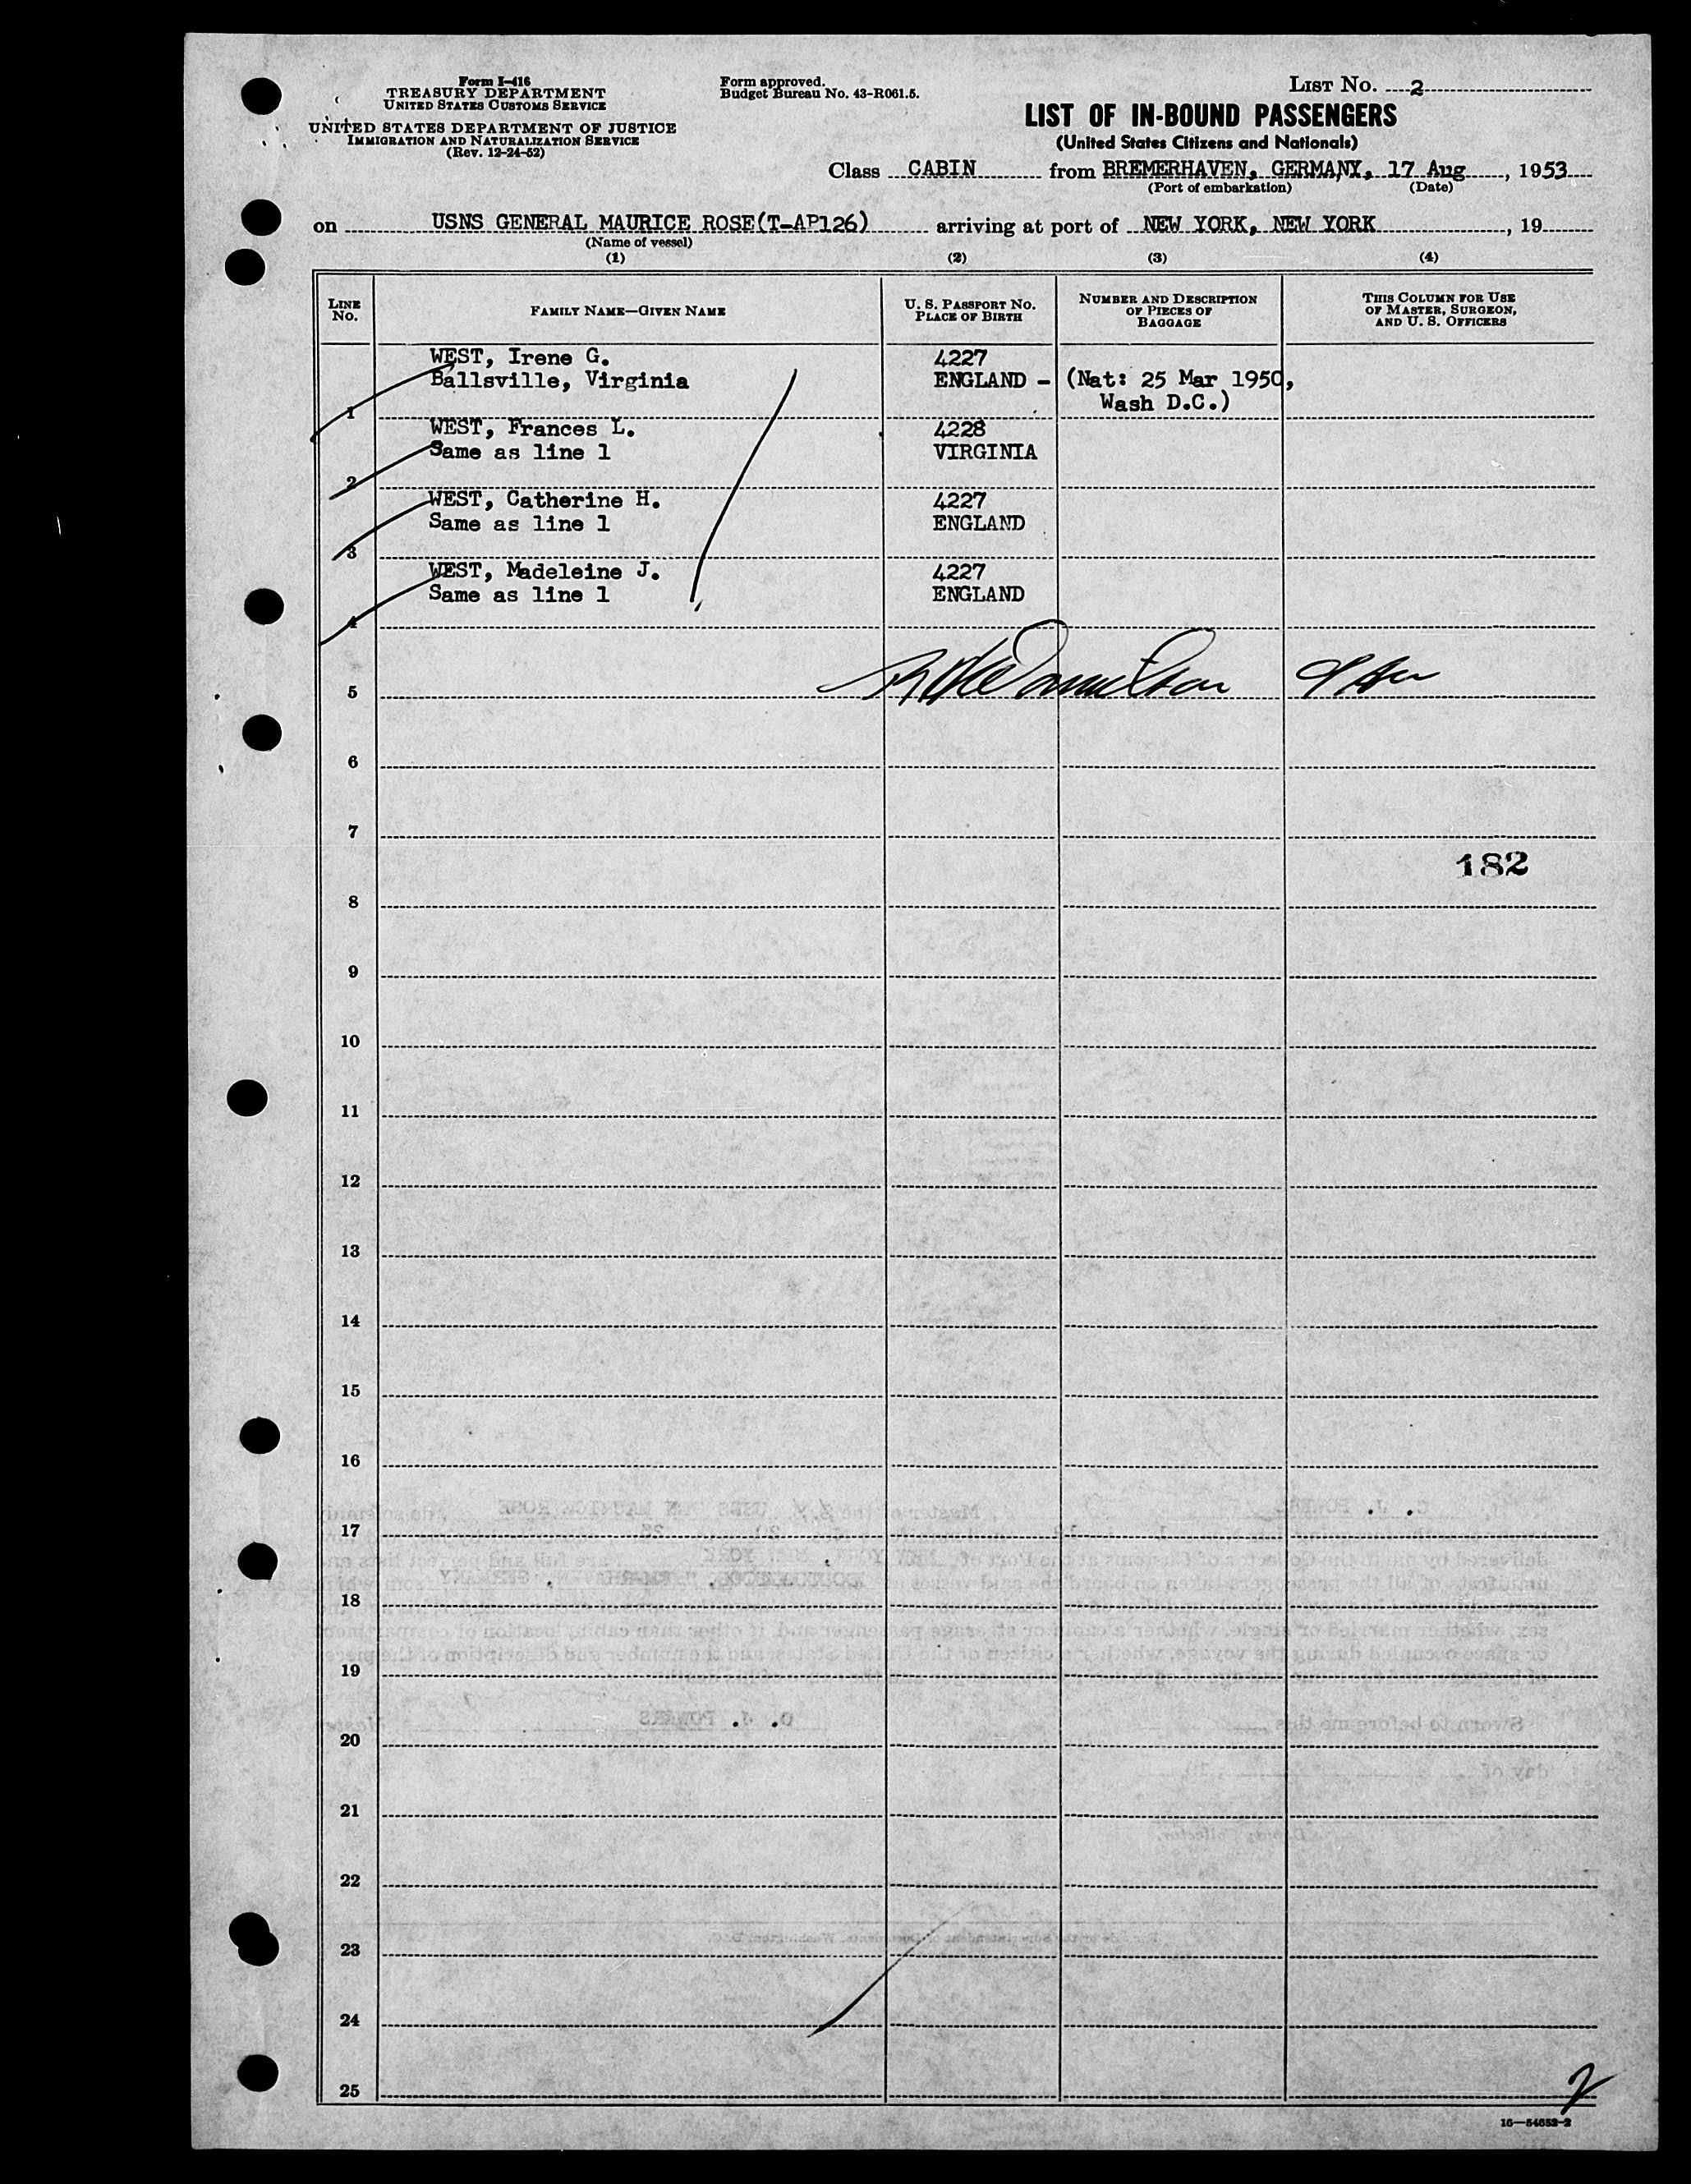 Form I-416
TREASURY DEPARTMENT
UNITED STATES CUSTOMS SERVICE
UNITED STATES DEPARTMENT OF JUSTICE
IMMIGRATION AND NATURALIZATION SERVICE
(Rev. 12-24-52)
Form approved.
Budget Bureau No. 43-R061.5.
LIST NO. 2
LIST OF IN-BOUND PASSENGERS
(United States Citizens and Nationals)
Class CABIN from BREMERHAVEN, GERMANY, 17 Aug, 1953
(Port of embarkation) (Date)
on USNS GENERAL MAURICE ROSE(T-AP126) arriving at port of NEW YORK, NEW YORK, 19
(Name of vessel)
(1) (2) (3) (4)
LINE NO.
FAMILY NAME—GIVEN NAME
U. S. PASSPORT NO.
PLACE OF BIRTH
NUMBER AND DESCRIPTION
OF PIECES OF
BAGGAGE
THIS COLUMN FOR USE
OF MASTER, SURGEON,
AND U. S. OFFICERS
WEST, Irene G. 4227
Ballsville, Virginia ENGLAND - (Nat: 25 Mar 1950,
Wash D.C.)
1
WEST, Frances L. 4228
Same as line 1 VIRGINIA
2
WEST, Catherine H. 4227
Same as line 1 ENGLAND
3
WEST, Madeleine J. 4227
Same as line 1 ENGLAND
4
5
6
7
182
8
9
10
11
12
13
14
15
16
17
18
19
20
21
22
23
24
25
2
16—54652-2